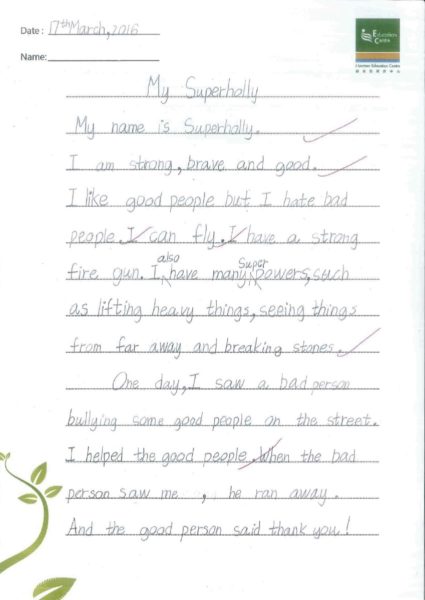 Date : 17th March, 2016
Education
Centre
Name:
My Superholly
My name is Superholly.
I am strong, brave and good.
I like good people but I hate bad
people. I can fly. I have a strong
also Super
fire gun. I have many powers, such
as lifting heavy things, seeing things
from far away and breaking stones.
One day, I saw a bad person
bullying some good people on the street.
I helped the good people. When the bad
person saw me , he ran away.
And the good person said thank you!